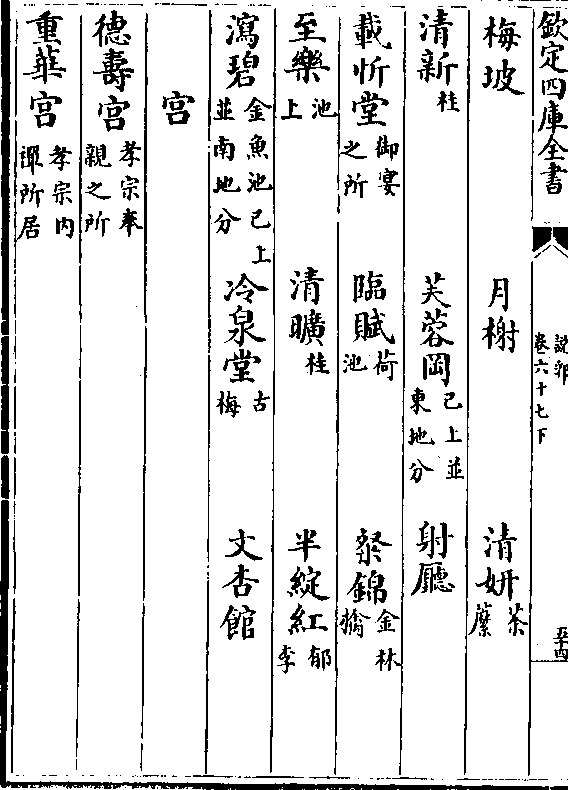 欽定四庫全書 說郛 卷六十七下 五十四
梅坡 月榭 清妍荼䕷
清新桂 芙蓉岡已上並東地分 射廳
載忻堂御宴之所 臨賦荷池 粲錦金林檎
至樂池上 清曠桂 半綻紅郁李
瀉碧金魚池已上並南地分 冷泉堂古梅 文杏館
宮
德壽宮孝宗奉親之所
重華宮孝宗內禪所居